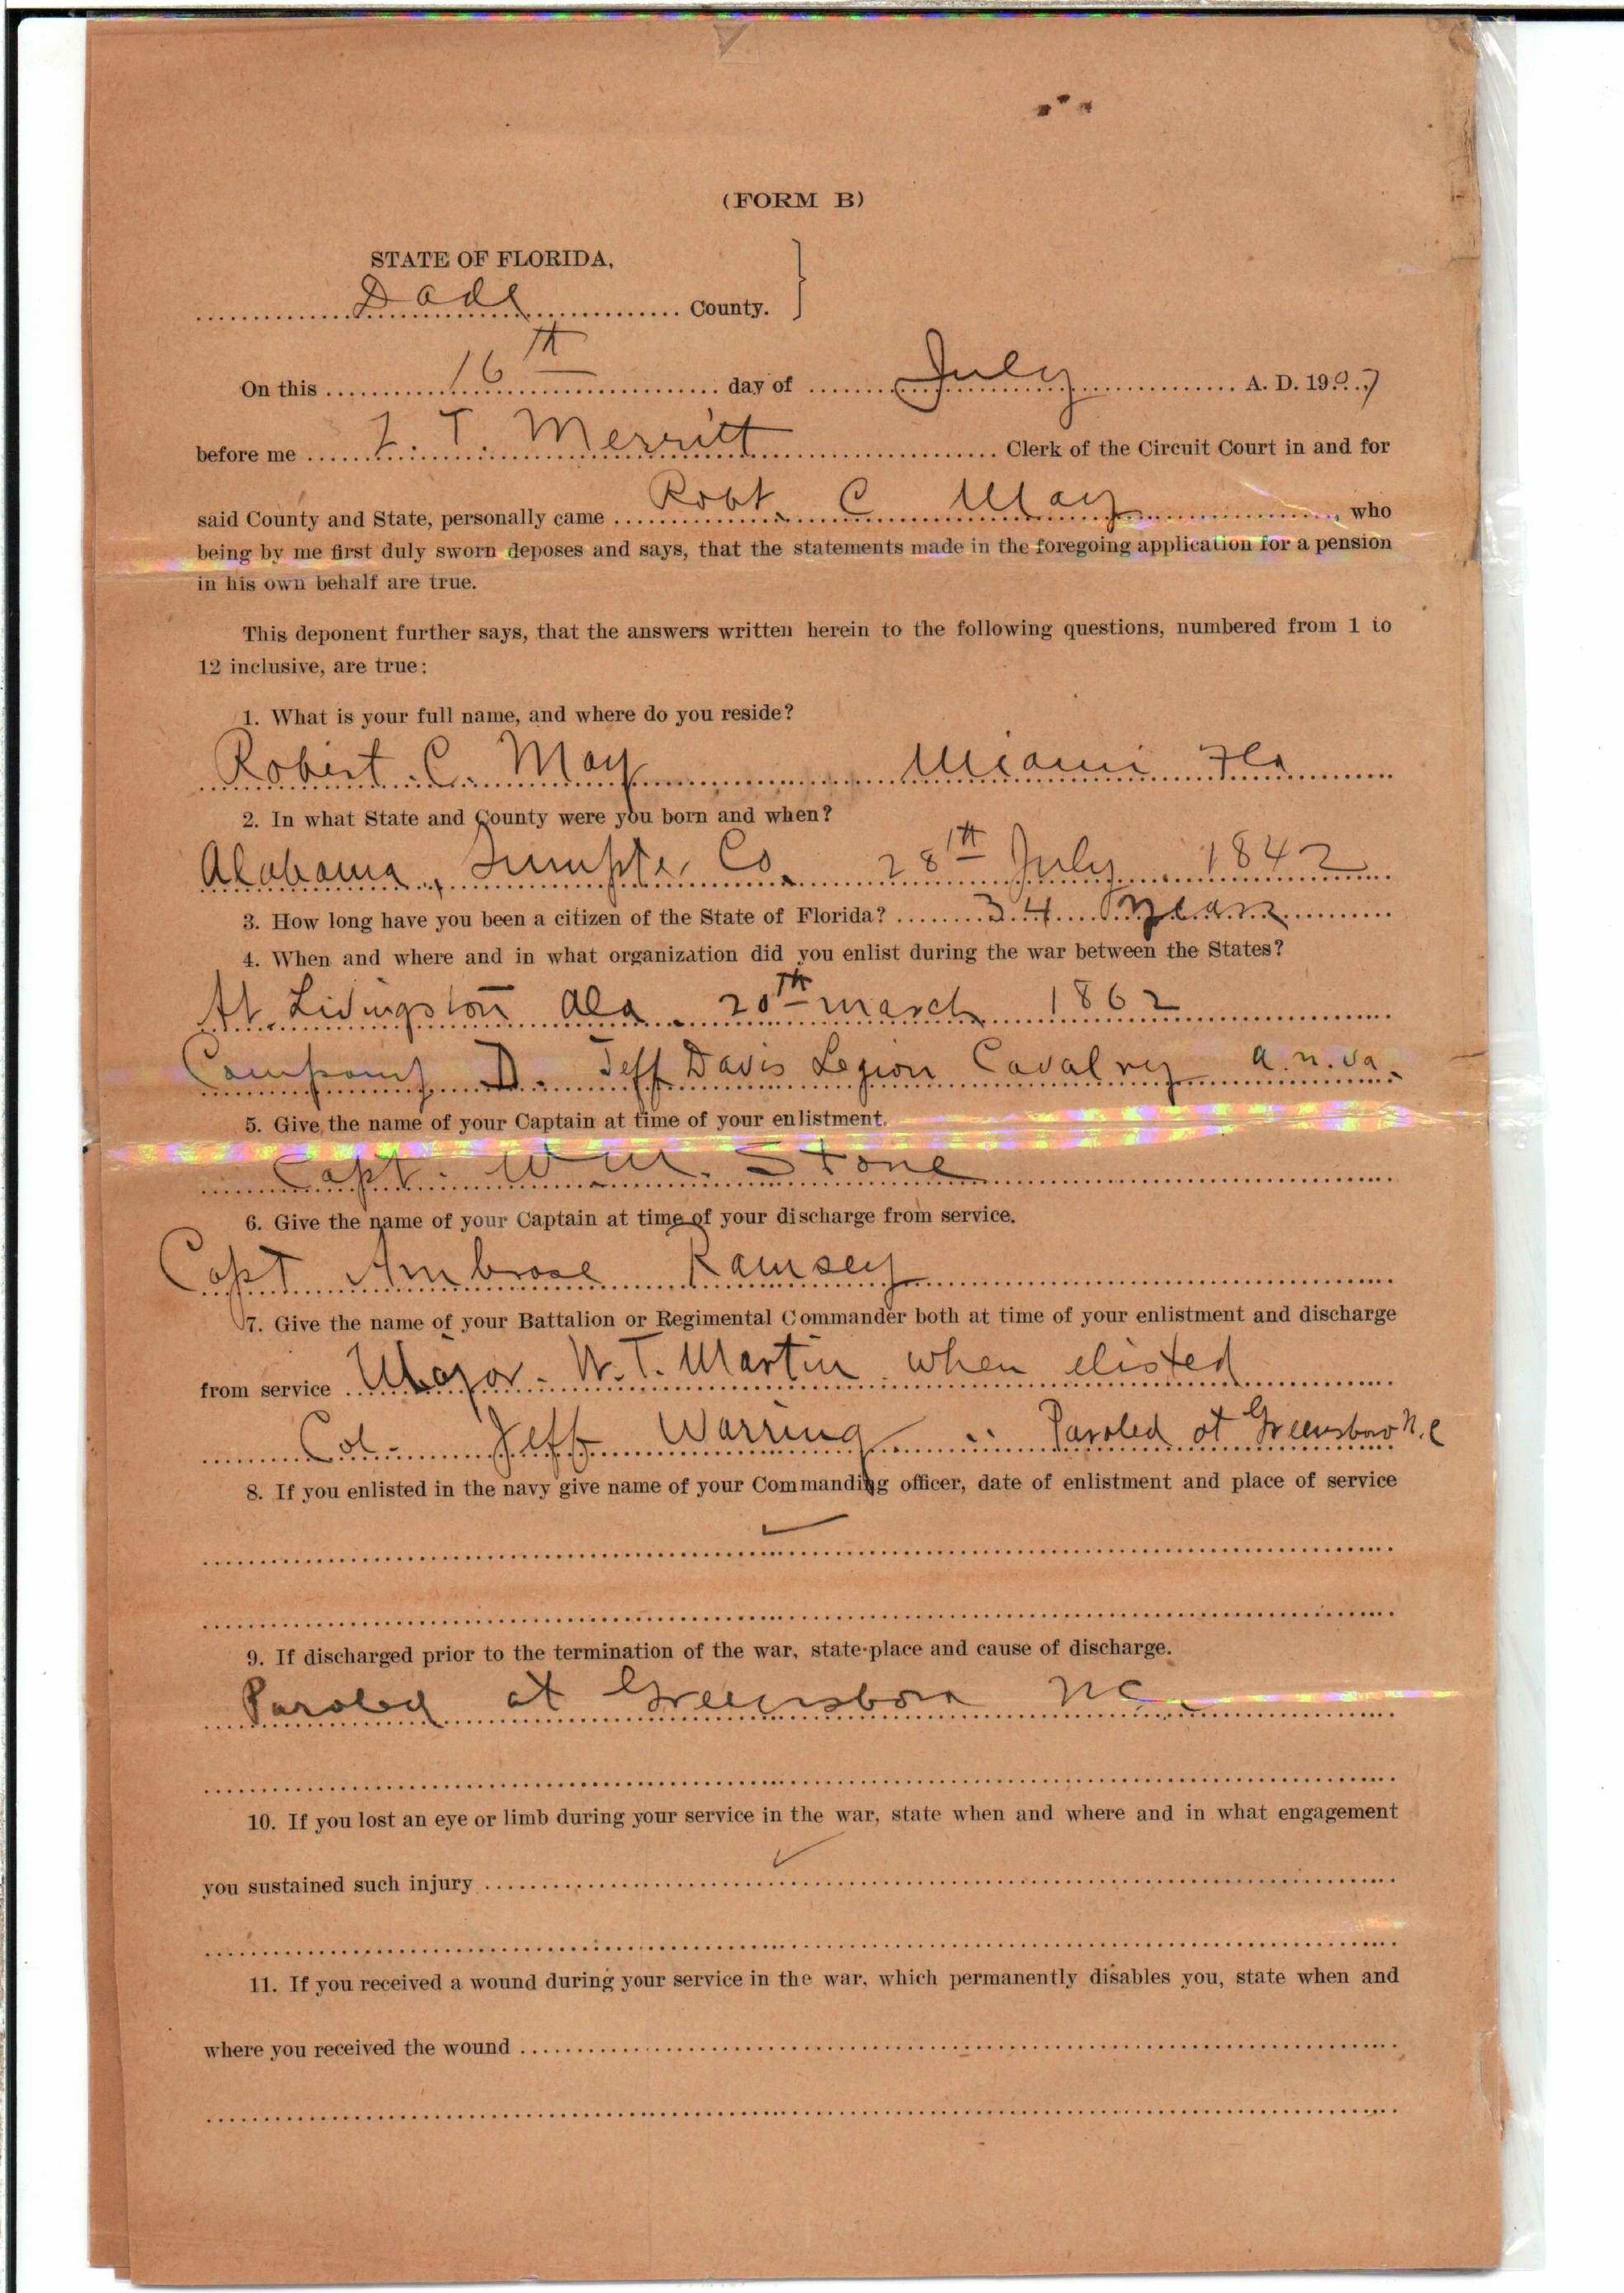 (FORM B)
STATE OF FLORIDA,
Dade County.
On this 16th day of July A. D. 1907
before me Z. T. Merritt Clerk of the Circuit Court in and for
said County and State, personally came Robt. C May, who
being by me first duly sworn deposes and says, that the statements made in the foregoing application for a pension
in his own behalf are true.
This deponent further says, that the answers written herein to the following questions, numbered from 1 to
12 inclusive, are true:
1. What is your full name, and where do you reside?
Robert C. May Miami Fla
2. In what State and County were you born and when?
Alabama, Sumpter Co. 28th July 1842
3. How long have you been a citizen of the State of Florida? 34 years
4. When and where and in what organization did you enlist during the war between the States?
At Livingston Ala. 20th march 1862
Company D. Jeff Davis Legion Cavalry a.n.va.
5. Give the name of your Captain at time of your enlistment.
Capt. W M. Stone
6. Give the name of your Captain at time of your discharge from service.
Capt Ambrose Ramsey
7. Give the name of your Battalion or Regimental Commander both at time of your enlistment and discharge
from service Major. W. T. Martin when elisted
Col. Jeff Warring Paroled at Greensboro N.C
8. If you enlisted in the navy give name of your Commanding officer, date of enlistment and place of service
9. If discharged prior to the termination of the war, state place and cause of discharge.
Paroled at Greensboro NC
10. If you lost an eye or limb during your service in the war, state when and where and in what engagement
you sustained such injury
11. If you received a wound during your service in the war, which permanently disables you, state when and
where you received the wound